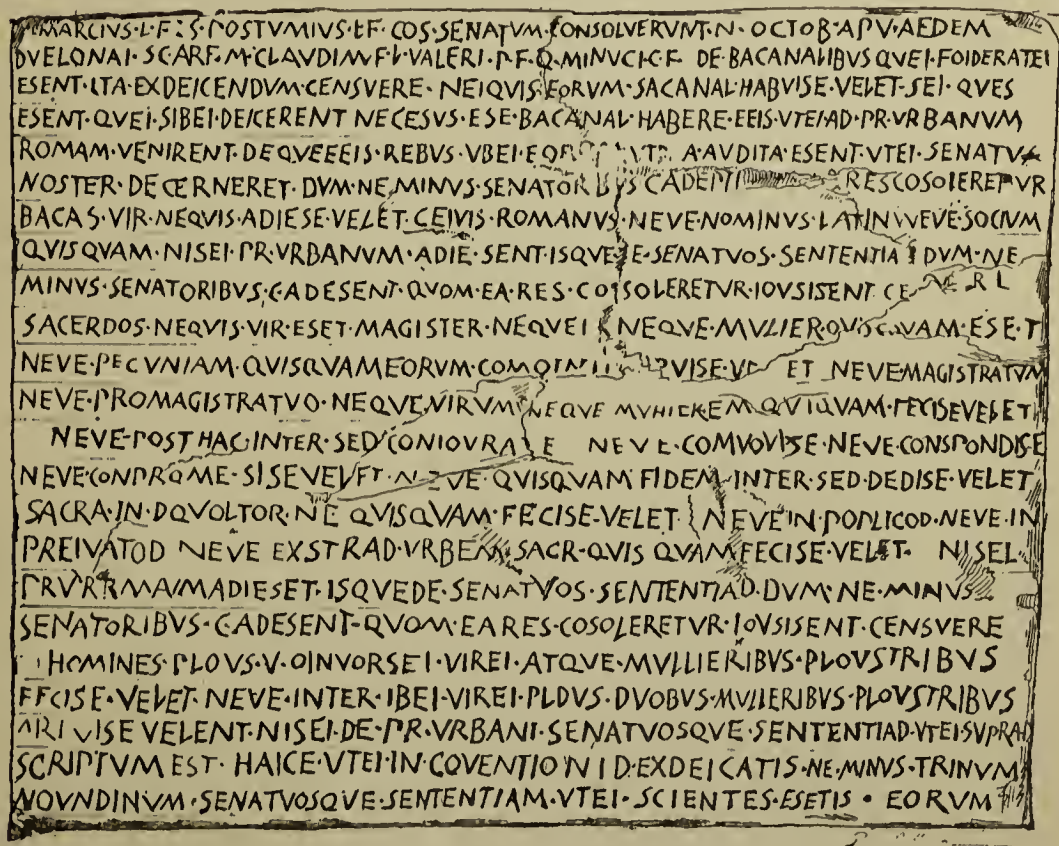 MARCIVS·L·F·S·POSTVMIVS·L·F·COS·SENATVM·CONSOLVERVNT·N·OCTOB·APV·AEDEM
DVELONAI·SC·ARF·M·CLAVDI·M·F·L·VALERI·P·F·Q·MINVCI·C·F· DE·BACANALIBVS QVEI·FOIDERATEI
ESENT·ITA·EXDEICENDVM·CENSVERE· NEIQVIS EORVM·SACANAL·HABVISE·VELET·SEI·QVES
ESENT·QVEI·SIBEI·DEICERENT NECESVS·ESE·BACANAL·HABERE·EEIS·VTEI·AD·PR·VRBANVM
ROMAM·VENIRENT·DEQVE·EEIS·REBVS·VBEI·EOR A·AVDITA·ESENT·VTEI·SENATV
NOSTER·DECERNERET·DVM·NE·MINVS·SENATORIBVS CADE RES COSOLERETVR
BACAS·VIR·NEQVIS·ADIESE·VELET·CEIVIS·ROMANVS·NEVE·NOMINVS·LATINI NEVE·SOCIVM
QVISQVAM·NISEI·PR·VRBANVM·ADIE·SENT·ISQVE E·SENATVOS·SENTENTIA DVM·NE
MINVS·SENATORIBVS·C·ADESENT·QVOM·EA·RES·COSOLERETVR·IOVSISENT·CE
SACERDOS·NEQVIS·VIR·ESET·MAGISTER·NEQVE NEQVE·MVLIER·QVISQVAM·ESE·T
NEVE·PECVNIAM·QVISQVAM EORVM·COMOIN VISE·V ET NEVE MAGISTRATVM
NEVE·PROMAGISTRATVO·NEQVE·VIRVM NEQVE MVHIEREM QVIQVAM·FECISE VELET
NEVE·POST HAC INTER·SED CONIOVRA E NEVE·COMVOVISE·NEVE·CONSPONDISE
NEVE·CONPROME·SISE VELET·NEVE·QVISQVAM FIDEM·INTER·SED·DEDISE·VELET
SACRA·IN·DQVOLTOR·NE QVISQVAM·FECISE·VELET NEVE IN·POPLICOD·NEVE·IN
PREIVATOD NEVE EXSTRAD·VRBEM·SACR·QVIS QVAM FECISE·VELET· NISEI·
PR VR ADIESET·ISQVE DE·SENATVOS·SENTENTIAD·DVM·NE·MINVS
SENATORIBVS·C·ADESENT·QVOM·EA RES·COSOLERETVR·IOVSISENT·CENSVERE
HOMINES·PLOVS·V·OINVORSEI·VIREI·ATQVE·MVLLIERIBVS·PLOVSTRIBVS
FECISE·VELET·NEVE·INTER·IBEI·VIREI·PLDVS·DVOBVS·MVLIERIBVS·PLOVSTRIBVS
ARI VISE VELENT·NISEI·DE·PR·VRBANI·SENATVOSQVE·SENTENTIAD·VTEI·SVPRAD
SCRIPTVM EST· HAICE·VTEI·IN COVENTIONID·EXDEICATIS·NE·MINVS·TRINVM
NOVNDINVM·SENATVOSQVE·SENTENTIAM·VTEI·SCIENTES·ESETIS · EORVM